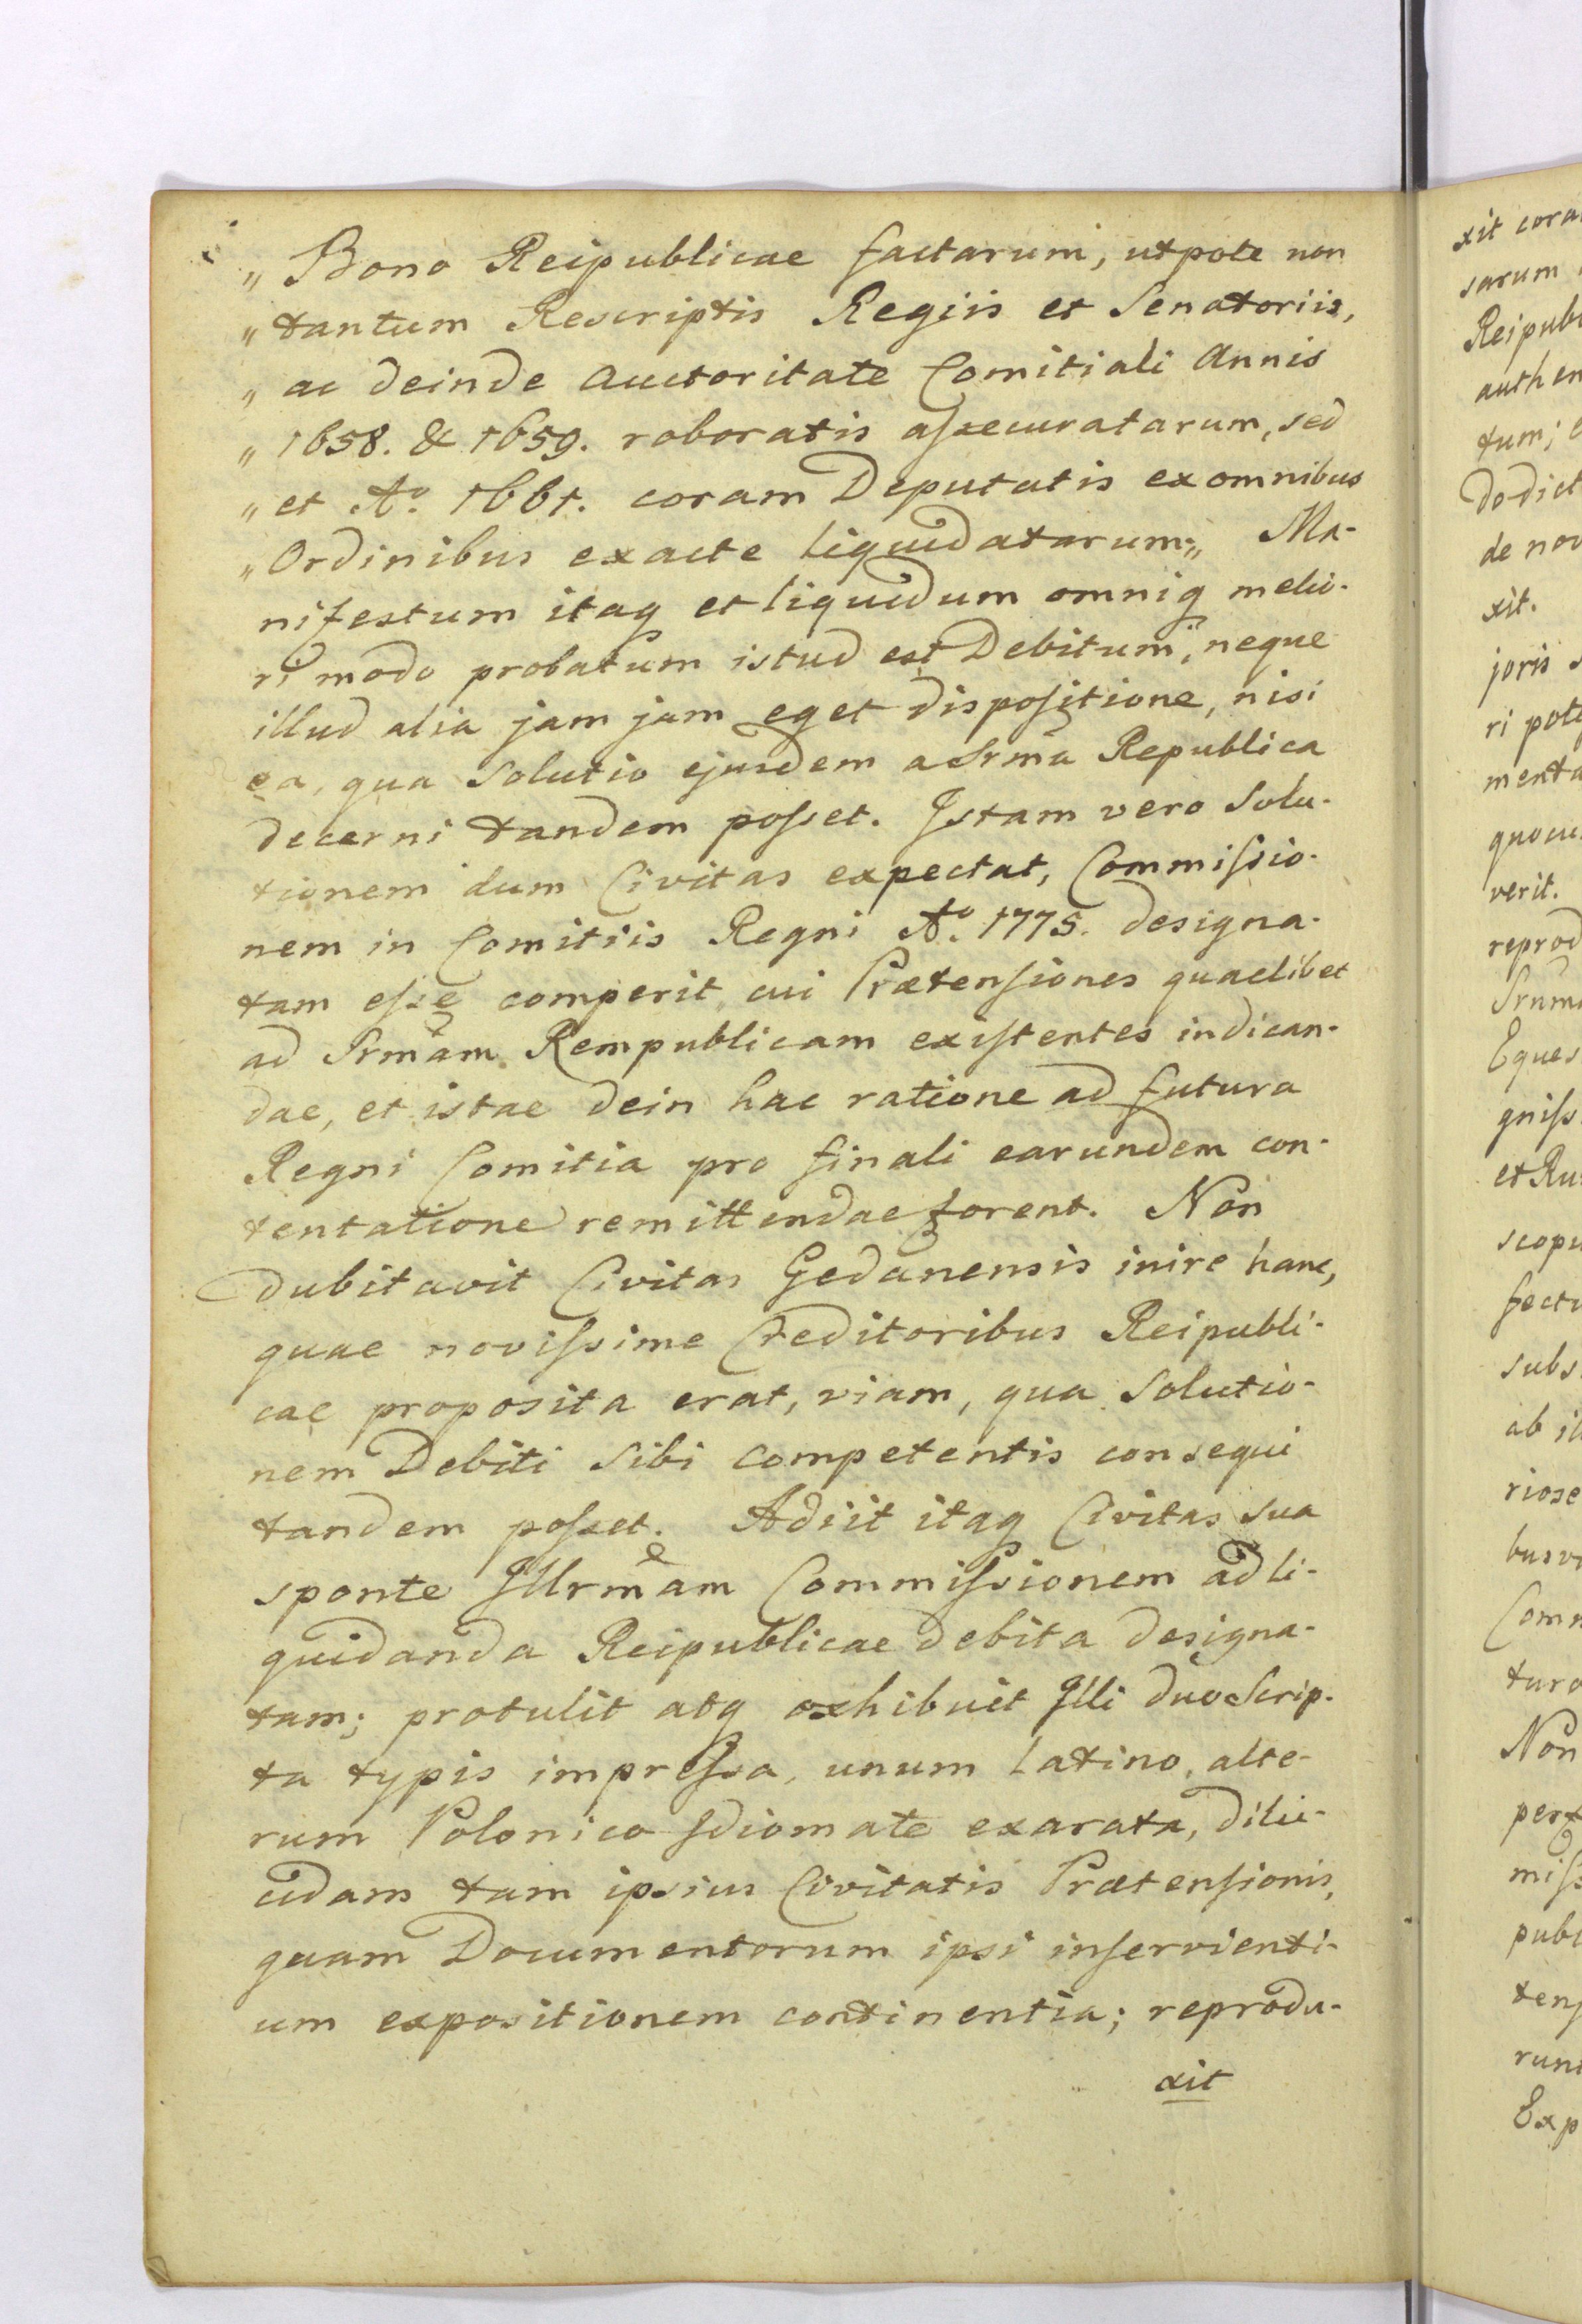 „ Bono Reipublicae factarum, utpote non
„ tantum Rescriptis Regiis et Senatoriis,
„ ac deinde Auctoritate Comitiali Annis
„ 1658. & 1659. roboratis aſsecuratarum, sed
„ et Aº. 1661. coram Deputatis ex omnibus
„ Ordinibus exacte liquidatarum;„ Ma-
nifestum itaq et liquidum omniq melio-
ri modo probatum istud est Debitum, neque
illud alia jam jam eget dispoſitione, nisi
ea, qua Solutio ejusdem a Srma Republica
decerni tandem poſset. Istam vero Solu-
tionem dum Civitas expectat, Commiſsio-
nem in Comitiis Regni Aº. 1775. designa-
tam eſse comperit, cui Prætenſiones quaelibet
ad Srmam Rempublicam exiſtentes indican-
dae, et istae dein hac ratione ad futura
Regni Comitia pro finali earundem con-
tentatione remittendae forent. Non
dubitavit Civitas Gedanensis inire hanc,
quae noviſsime Creditoribus Reipubli-
cae proposita erat, viam, qua Solutio-
nem Debiti Sibi competentis consequi
tandem poſset. Adiit itaq Civitas sua
sponte Illrmam Commiſsionem ad li-
quidanda Reipublicae debita designa-
tam; protulit atq exhibuit Illi duo Scrip-
ta typis impreſsa, unum Latino, alte-
rum Polonico Idiomate exarata, dilu-
cidam tam ipsius Civitatis Prætenſionis,
quam Documentorum ipsi inſervienti-
um expositionem continentia; reprodu-
xit
xit cora
sarum
Reipub
authen
tum;
do dict
de nov
xit.
joris
ri pot
menta
quocu
verit.
reprod
Eques
gniſs
et Ru
scopu
fectu
subs
ab il
riose
busv
Com
turo
Non
pert
miſs
publ
tenſ
run
Exp